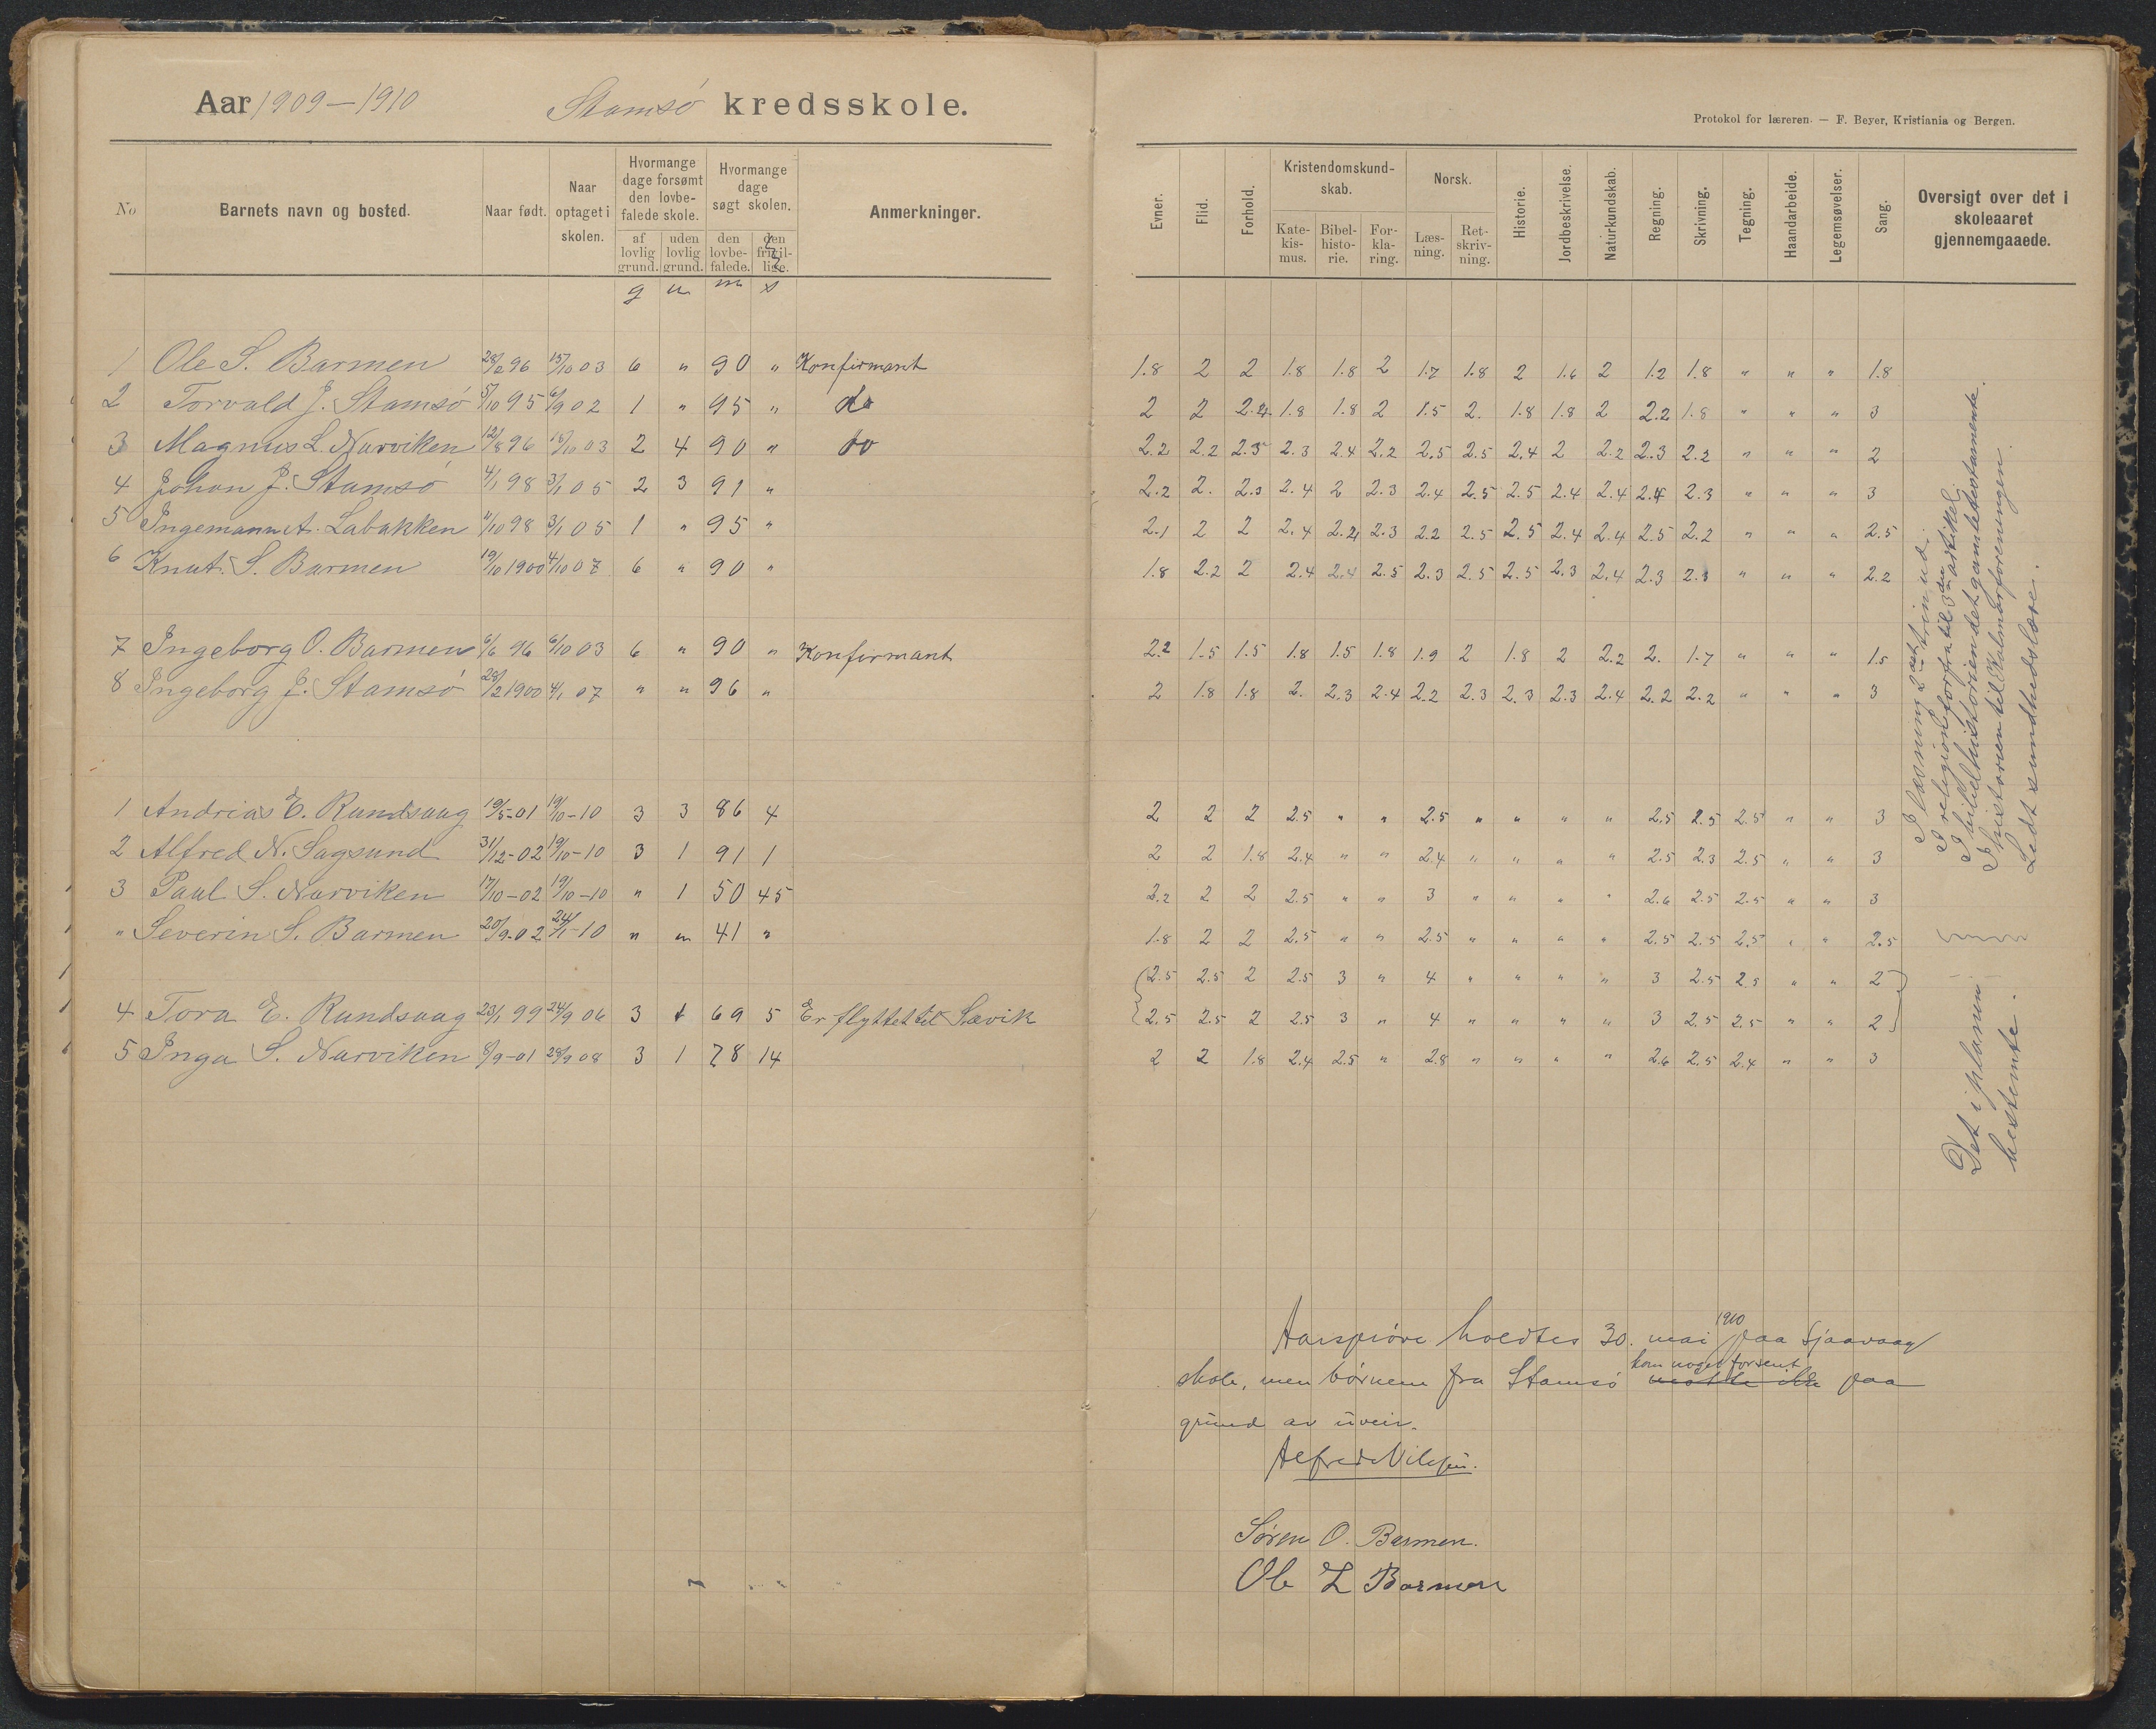 Aar 1909-1910 Stamsø kredsskole.
Protokol for læreren. — F. Beyer, Kristiania og Bergen.
No Barnets navn og bosted. Naar født. Naar optaget i skolen. Hvormange dage forsømt den lovbefalede skole. af lovlig grund. uden lovlig grund. Hvormange dage søgt skolen. den lovbefalede. den frivillige. Anmerkninger.
Evner. Flid. Forhold. Kristendomskundskab. Katekismus. Bibelhistorie. Forklaring. Norsk. Læsning. Retskrivning. Historie. Jordbeskrivelse. Naturkundskab. Regning. Skrivning. Tegning. Haandarbeide. Legemsøvelser. Sang. Oversigt over det i skoleaaret gjennemgaaede.
g u m s
1 Ole S. Barmen 28/2 96 15/10 03 6 " 90 " Konfirmant 1.8 2 2 1.8 1.8 2 1.7 1.8 2 1.6 2 1.2 1.8 " " " 1.8
2 Torvald J. Stamsø 5/10 95 6/9 02 1 " 95 " do 2 2 2.2 1.8 1.8 2 1.5 2. 1.8 1.8 2 2.2 1.8 " " " 3
3 Magnus L. Narviken 12/8 96 15/10 03 2 4 90 " do 2.2 2.2 2.5 2.3 2.4 2.2 2.5 2.5 2.4 2 2.2 2.3 2.2 " " " 2
4 Johan J. Stamsø 4/1 98 3/1 05 2 3 91 " 2.2 2. 2.3 2.4 2 2.3 2.4 2.5 2.5 2.4 2.4 2.4 2.3 " " " 3
5 Ingemann A. Labakken 11/10 98 3/1 05 1 " 95 " 2.1 2 2 2.4 2.2 2.3 2.2 2.5 2.5 2.4 2.4 2.5 2.2 " " " 2.5
6 Knut. S. Barmen 19/10 1900 4/10 07 6 " 90 " 1.8 2.2 2 2.4 2.4 2.5 2.3 2.5 2.5 2.3 2.4 2.3 2.3 " " " 2.2
7 Ingeborg O. Barmen 6/6 96 6/10 03 6 " 90 " Konfirmant 2.2 1.5 1.5 1.8 1.5 1.8 1.9 2 1.8 2 2.2 2. 1.7 " " " 1.5
8 Ingeborg J. Stamsø 28/2 1900 4/1 07 " " 96 " 2 1.8 1.8 2. 2.3 2.4 2.2 2.3 2.3 2.3 2.4 2.2 2.2 " " " 3
1 Andrias E. Rundsaag 19/5-01 19/10-10 3 3 86 4 2 2 2 2.5 " " 2.5 " " " " 2.5 2.5 2.5 " " 3
2 Alfred N. Sagsund 31/12-02 19/10-10 3 1 91 1 2 2 1.8 2.4 " " 2.4 " " " " 2.5 2.3 2.5 " " 3
3 Paul S. Narviken 17/10-02 19/10-10 " 1 50 45 2.2 2 2 2.5 " " 3 " " " " 2.6 2.5 2.5 " " 3
" Severin S. Barmen 20/9-02 24/1-10 " " 41 " 1.8 2 2 2.5 " " 2.5 " " " " 2.5 2.5 2.5 " " 2.5
(2.5 2.5 2 2.5 3 " 4 " " " " 3 2.5 2.5 " " 2)
4 Tora E. Rundsaag 23/1 99 24/9 06 3 1 69 5 Er flyttet til Sævik 2.5 2.5 2 2.5 3 " 4 " " " " 3 2.5 2.5 " " 2
5 Inga S. Narviken 8/9-01 28/9 08 3 1 78 14 2 2 1.8 2.4 2.5 " 2.8 " " " " 2.6 2.5 2.4 " " 3
I læsning 2det trin ud.
I religion forfra til 3die artikel.
I bibelhistorien det gamle testamente.
I historien til Kalmarforeningen.
Ledt sundhedslære.
Det i planen
bestemte.
Aarsprøve holdtes 30. mai 1910 paa Sjaavaag
skole, men børnene fra Stamsø kom noget forsent paa
grund av uveir.
Alfred Nilsen.
Søren O. Barmen.
Ole L Barmen